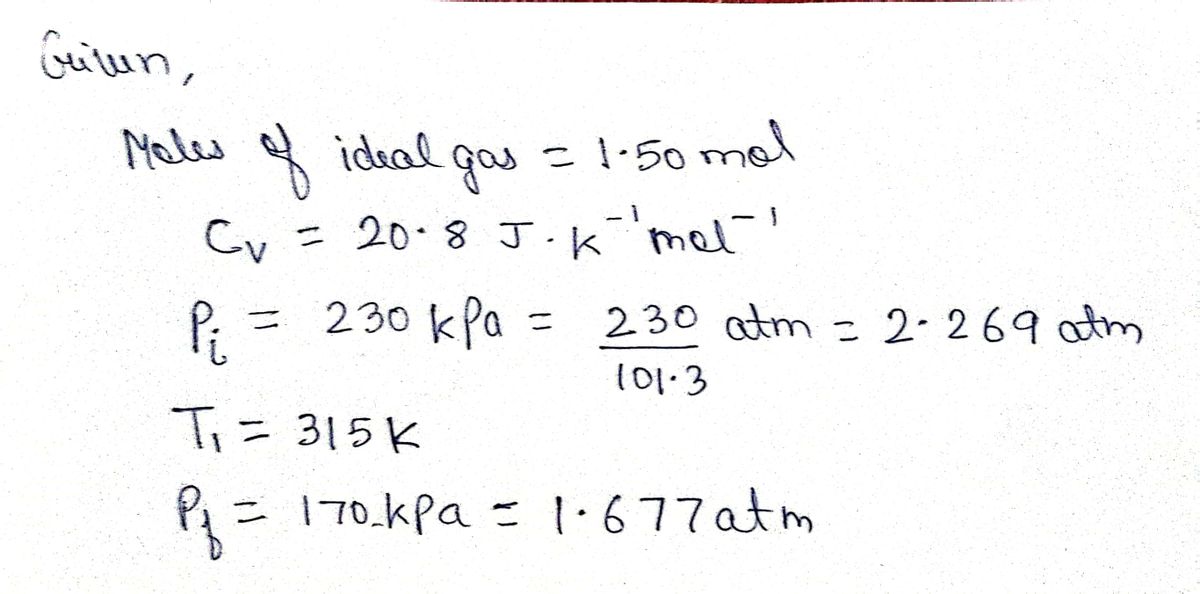 Given,
Moles of ideal gas = 1.50 mol
Cv = 20.8 J.K⁻¹mol⁻¹
Pi = 230 kPa = 230/101.3 atm = 2.269 atm
T1 = 315 K
Pf = 170 kPa = 1.677 atm